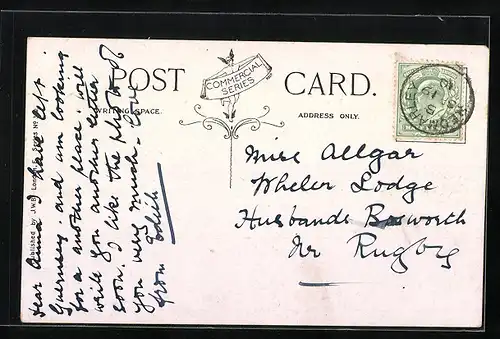 POST CARD.
COMMERCIAL
SERIES
WRITING SPACE.
ADDRESS ONLY.
Dear Anna I have left
Guernsey. and am looking
for a another place. will
write you another letter
soon. I like the photo of
you very much. love
from Edith
Miss Allgar
Wheler Lodge
Husbands Bosworth
Nr Rugby
Published by J.W.B. London